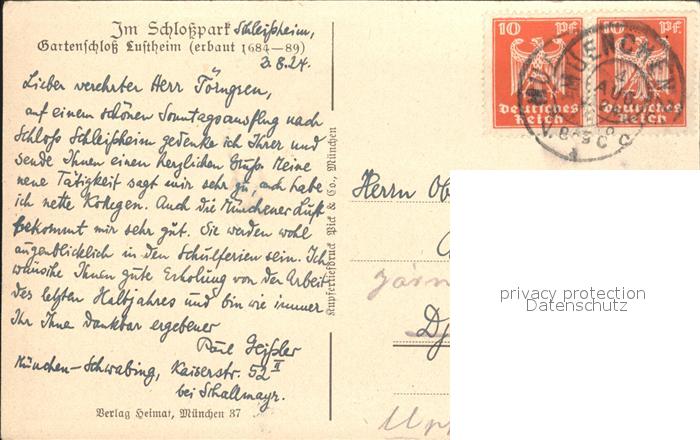 Im Schloßpark Schleißheim,
Gartenschloß Lustheim (erbaut 1684–89)
3.8.24.
Lieber verehrter Herr Törngren,
auf einem schönen Sonntagsausflug nach
Schloss Schleißheim gedenke ich Ihrer und
sende Ihnen einen herzlichen Gruß. Meine
neue Tätigkeit sagt mir sehr zu, auch habe
ich nette Kollegen. Auch die Münchener Luft
bekommt mir sehr gut. Sie werden wohl
augenblicklich in den Schulferien sein. Ich
wünsche Ihnen gute Erholung von der Arbeit
des letzten Halbjahres und bin wie immer
Ihr Ihnen dankbar ergebener
Paul Geißler
München-Schwabing, Kaiserstr. 52 II
bei Schallmayr.
Verlag Heimat, München 37
Kupfertiefdruck Pick & Co., München
10 Pf. 10 Pf.
Deutsches Deutsches
Reich Reich
MUENCHEN
AUG
Herrn Ob
Dj
Upp
privacy protection
Datenschutz